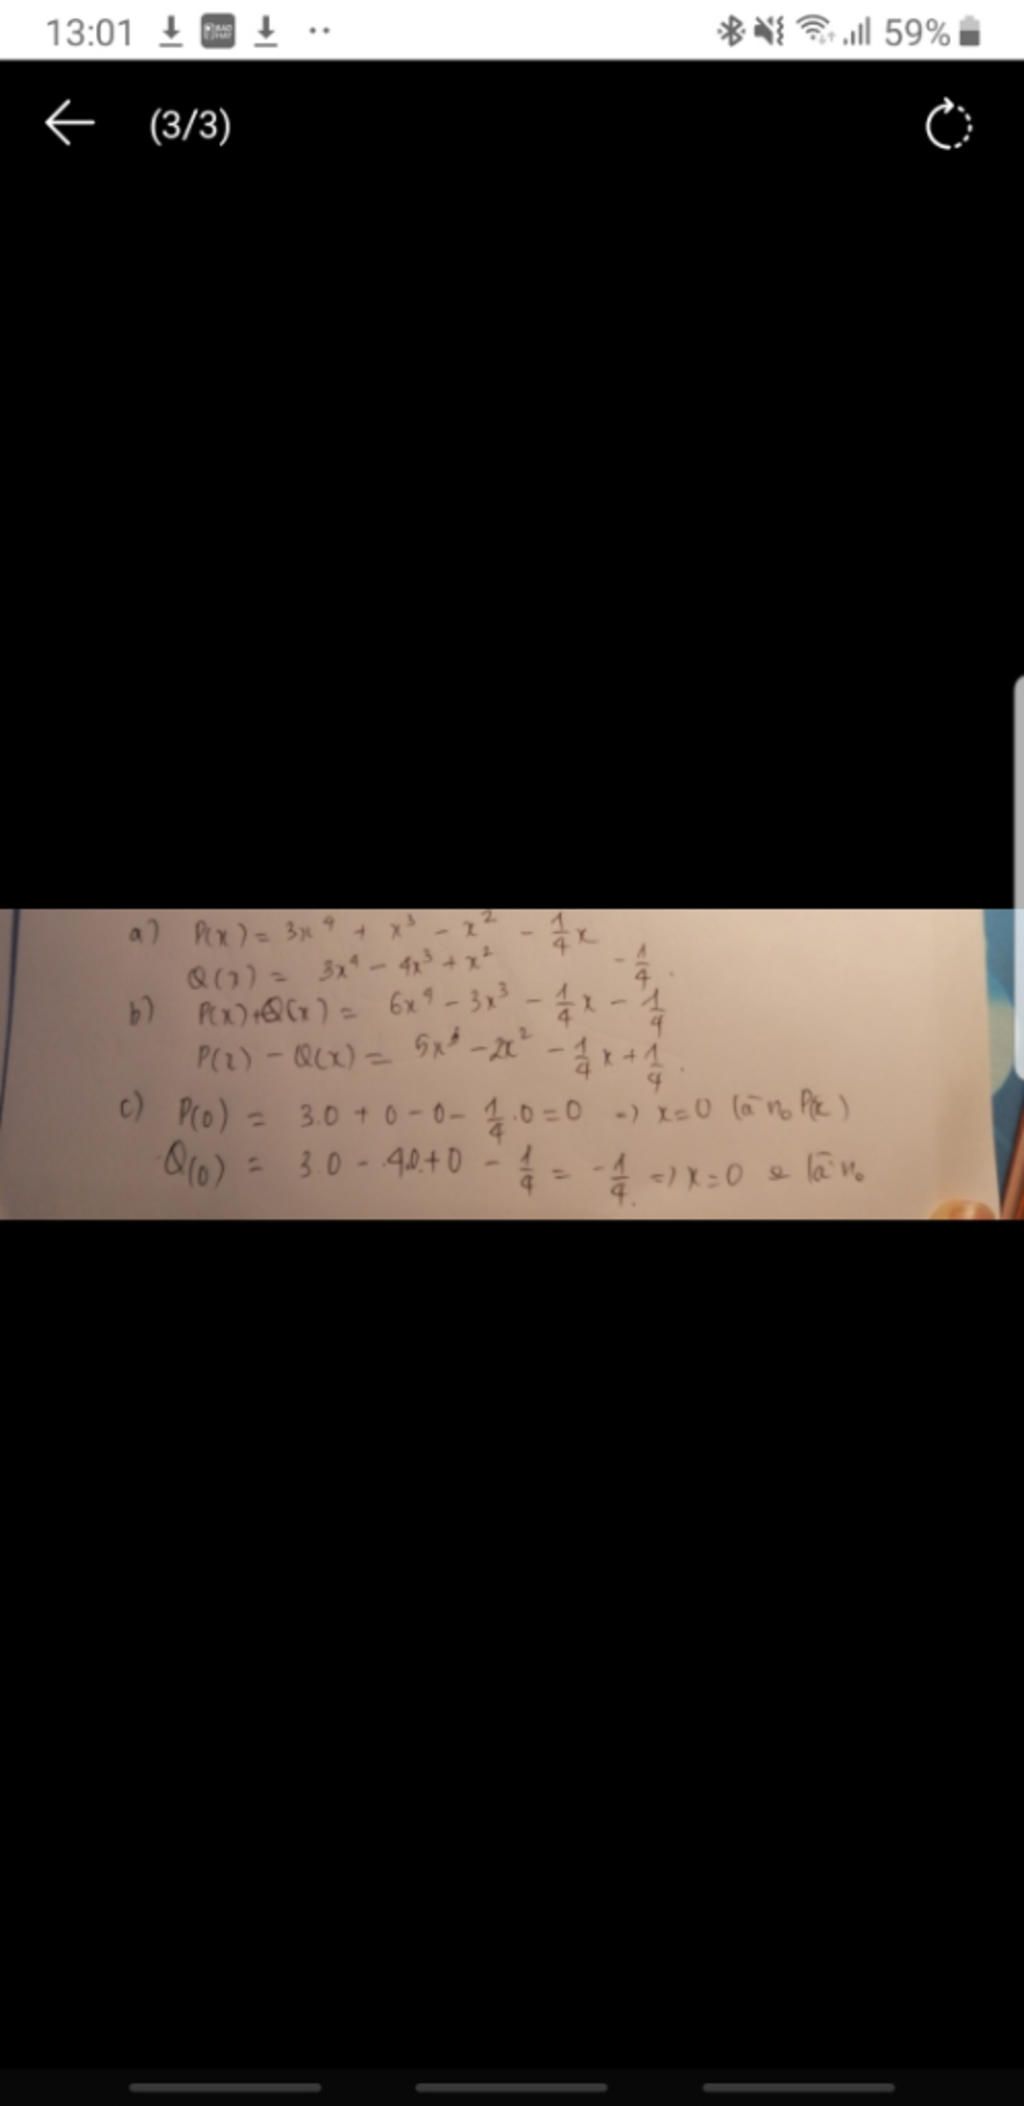 13:01 59%
(3/3)
a) P(x) = 3x⁴ + x³ - x² - 1/4 x
Q(x) = 3x⁴ - 4x³ + x² - 1/4.
b) P(x)+Q(x) = 6x⁴ - 3x³ - 1/4 x - 1/4
P(x) - Q(x) = 5x³ - 2x² - 1/4 x + 1/4.
c) P(0) = 3.0 + 0 - 0 - 1/4 .0 = 0 => x=0 là no P(x)
Q(0) = 3.0 - 4.0 + 0 - 1/4 = -1/4. => x=0 là no